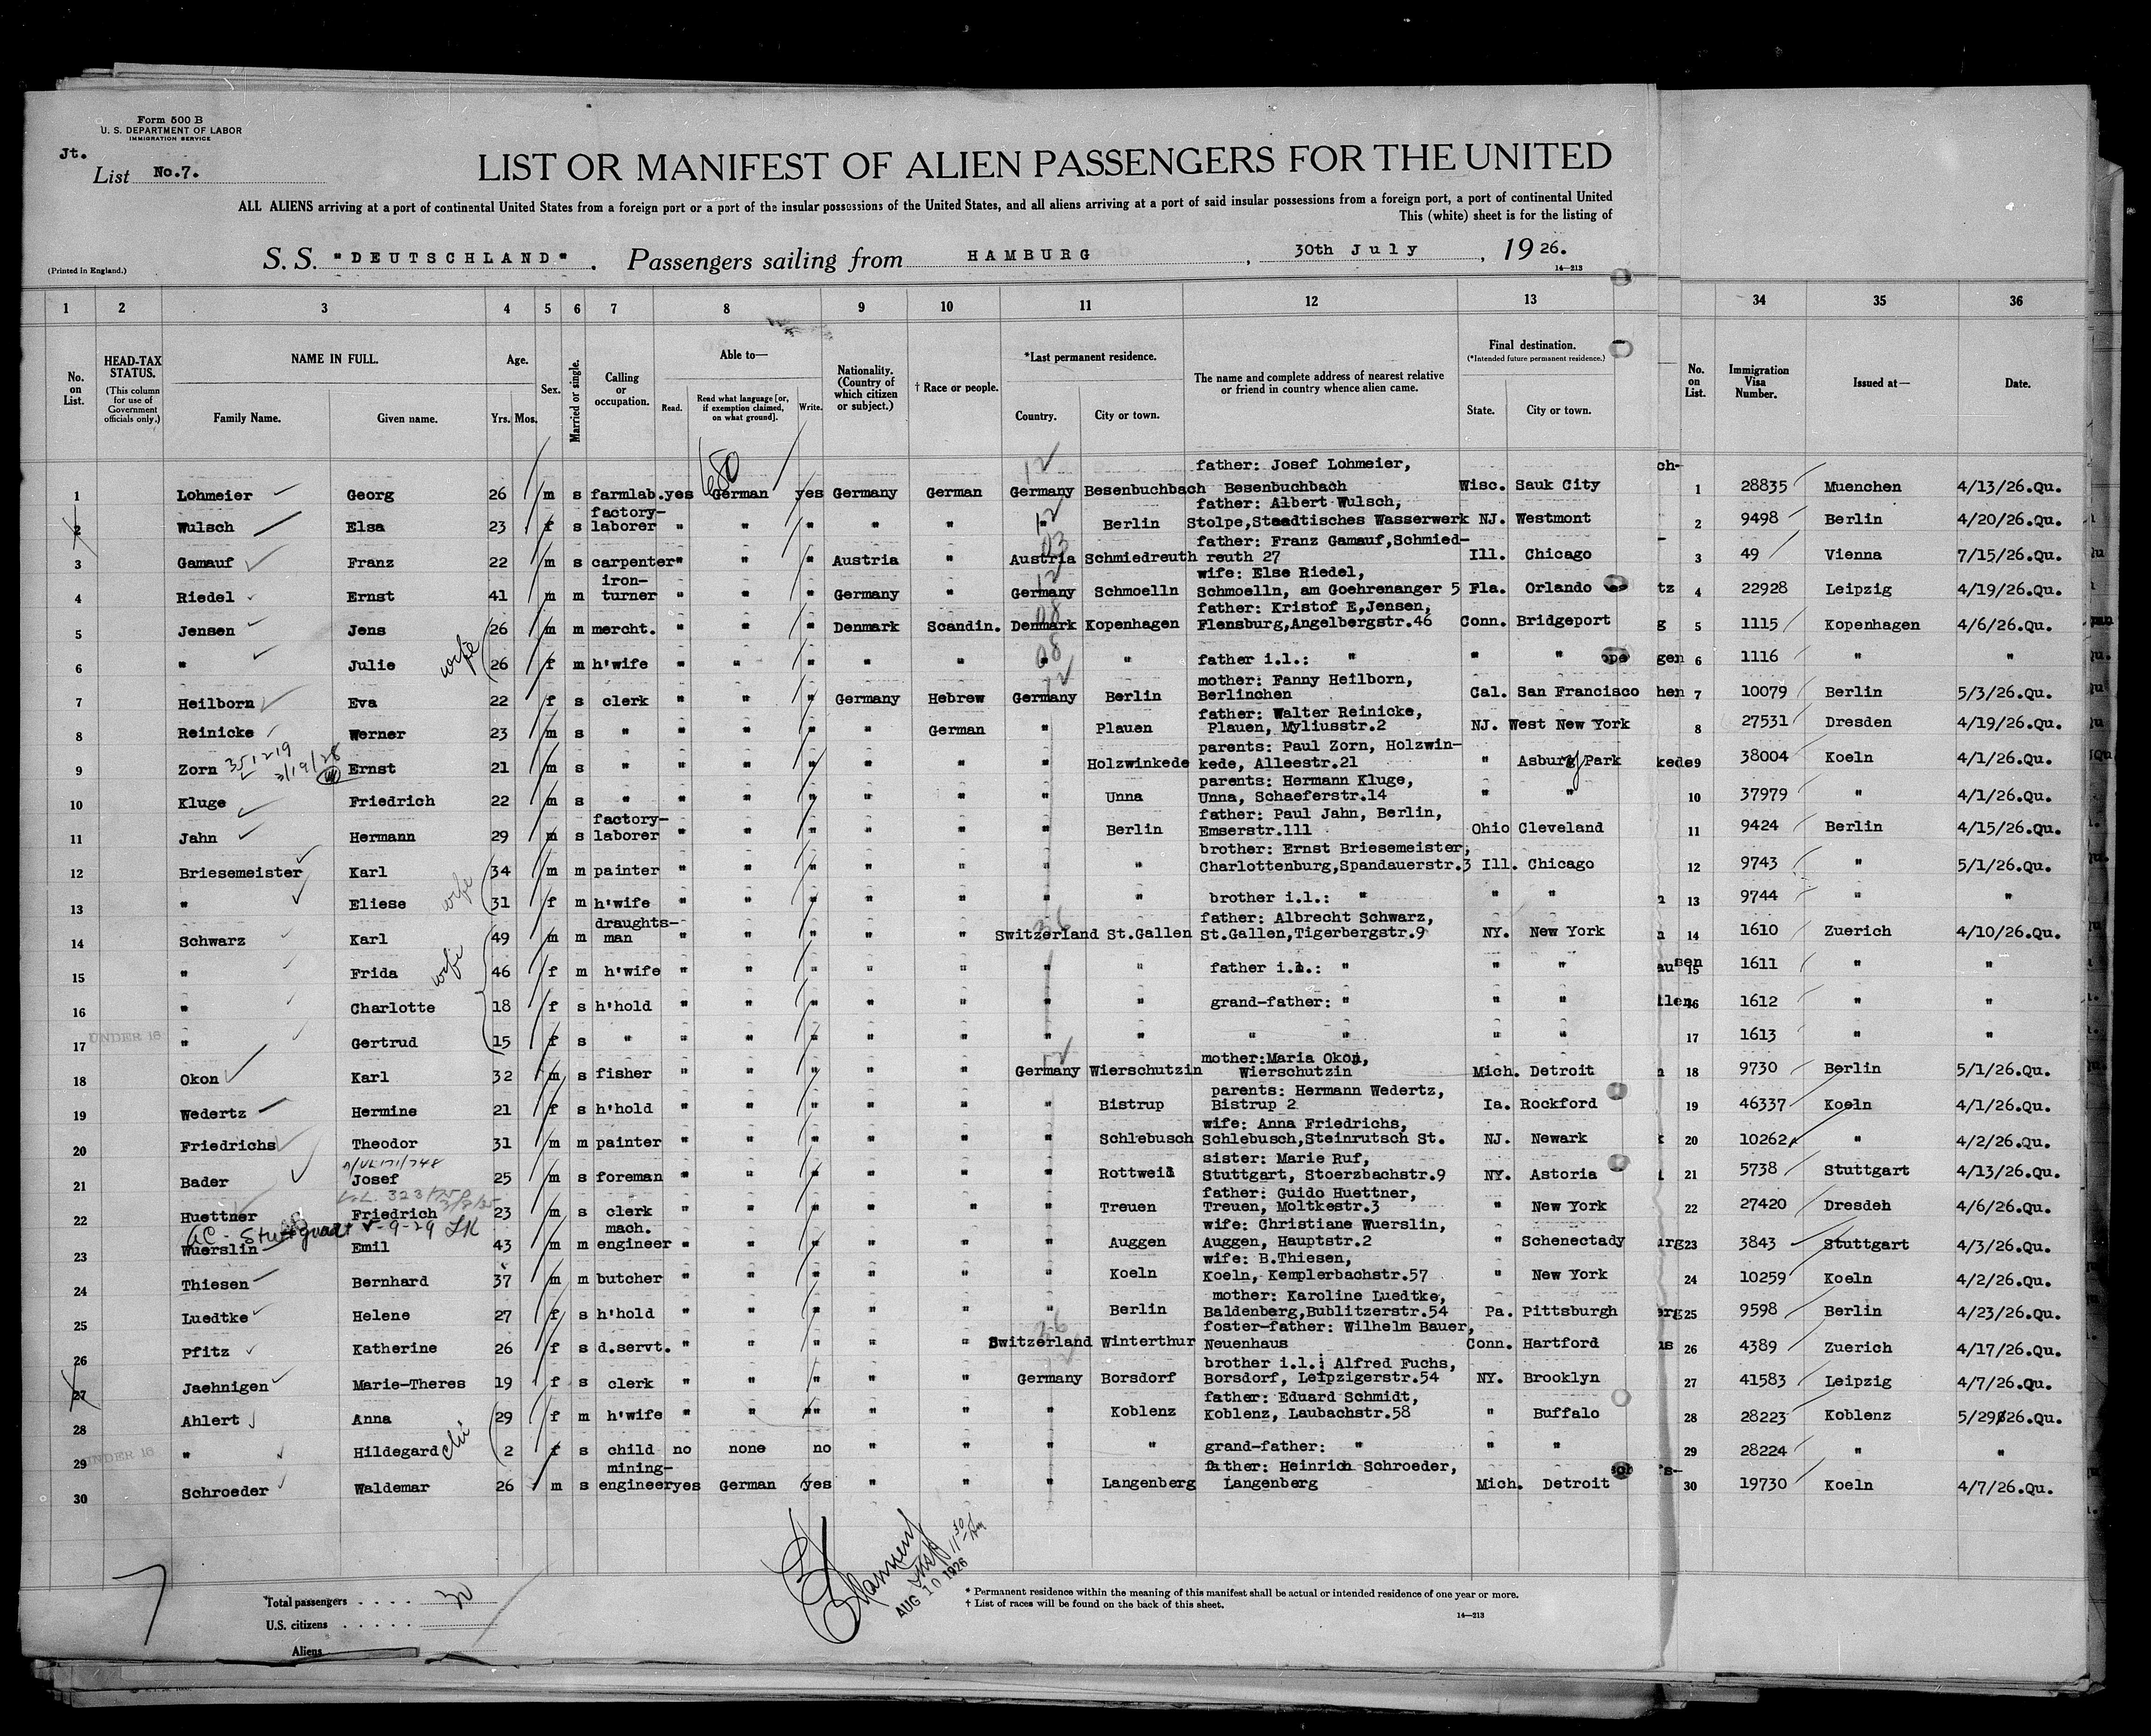 Form 500 B
U. S. DEPARTMENT OF LABOR
IMMIGRATION SERVICE
Jt.
List No.7.
LIST OR MANIFEST OF ALIEN PASSENGERS FOR THE UNITED
ALL ALIENS arriving at a port of continental United States from a foreign port or a port of the insular possessions of the United States, and all aliens arriving at a port of said insular possessions from a foreign port, a port of continental United
This (white) sheet is for the listing of
S. S. "DEUTSCHLAND" . Passengers sailing from HAMBURG , 30th July , 19 26.
(Printed in England.)
14—213
1 2 3 4 5 6 7 8 9 10 11 12 13 34 35 36
No. on List. HEAD-TAX STATUS. (This column for use of Government officials only.) NAME IN FULL. Family Name. Given name. Age. Yrs. Mos. Sex. Married or single. Calling or occupation. Able to— Read. Read what language [or, if exemption claimed, on what ground]. Write. Nationality. (Country of which citizen or subject.) † Race or people. *Last permanent residence. Country. City or town. The name and complete address of nearest relative or friend in country whence alien came. Final destination. (*Intended future permanent residence.) State. City or town. No. on List. Immigration Visa Number. Issued at— Date.
680
father: Josef Lohmeier,
1 Lohmeier Georg 26 m s farmlab. yes German yes Germany German Germany Besenbuchbach Besenbuchbach Wisc. Sauk City 1 28835 Muenchen 4/13/26.Qu.
factory- father: Albert Wulsch,
2 Wulsch Elsa 23 f s laborer " " " " " " Berlin Stolpe,Staadtisches Wasserwerk NJ. Westmont 2 9498 Berlin 4/20/26.Qu.
father: Franz Gamauf,Schmied-
3 Gamauf Franz 22 m s carpenter " " " Austria " Austria Schmiedreuth reuth 27 Ill. Chicago 3 49 Vienna 7/15/26.Qu.
iron- wife: Else Riedel,
4 Riedel Ernst 41 m m turner " " " Germany " Germany Schmoelln Schmoelln, am Goehrenanger 5 Fla. Orlando 4 22928 Leipzig 4/19/26.Qu.
father: Kristof E,Jensen,
5 Jensen Jens 26 m m mercht. " " " Denmark Scandin. Denmark Kopenhagen Flensburg,Angelbergstr.46 Conn. Bridgeport 5 1115 Kopenhagen 4/6/26.Qu.
6 " Julie wife 26 f m h'wife " " " " " " " father i.l.: " " " 6 1116 " "
mother: Fanny Heilborn,
7 Heilborn Eva 22 f s clerk " " " Germany Hebrew Germany Berlin Berlinchen Cal. San Francisco 7 10079 Berlin 5/3/26.Qu.
father: Walter Reinicke,
8 Reinicke Werner 23 m s " " " " " German " Plauen Plauen, Myliusstr.2 NJ. West New York 8 27531 Dresden 4/19/26.Qu.
parents: Paul Zorn, Holzwin-
9 Zorn 351219 3/19/28 Ernst 21 m s " " " " " " " Holzwinkede kede, Alleestr.21 " Asbury Park 9 38004 Koeln 4/1/26.Qu.
parents: Hermann Kluge,
10 Kluge Friedrich 22 m s " " " " " " " Unna Unna, Schaeferstr.14 " " 10 37979 " 4/1/26.Qu.
factory- father: Paul Jahn, Berlin,
11 Jahn Hermann 29 m s laborer " " " " " " Berlin Emserstr.111 Ohio Cleveland 11 9424 Berlin 4/15/26.Qu.
brother: Ernst Briesemeister,
12 Briesemeister Karl 34 m m painter " " " " " " " Charlottenburg,Spandauerstr.3 Ill. Chicago 12 9743 " 5/1/26.Qu.
13 " Eliese wife 31 f m h'wife " " " " " " " brother i.l.: " " " 13 9744 " "
draughts- father: Albrecht Schwarz,
14 Schwarz Karl 49 m m man " " " " " Switzerland St.Gallen St.Gallen,Tigerbergstr.9 NY. New York 14 1610 Zuerich 4/10/26.Qu.
15 " Frida wife 46 f m h'wife " " " " " " " father i.l.: " " " 15 1611 " "
16 " Charlotte 18 f s h'hold " " " " " " " grand-father: " " " 16 1612 " "
17 UNDER 16 " Gertrud 15 f s " " " " " " " " " " " " 17 1613 " "
mother:Maria Okon,
18 Okon Karl 32 m s fisher " " " " " Germany Wierschutzin Wierschutzin Mich. Detroit 18 9730 Berlin 5/1/26.Qu.
parents: Hermann Wedertz,
19 Wedertz Hermine 21 f s h'hold " " " " " " Bistrup Bistrup 2 Ia. Rockford 19 46337 Koeln 4/1/26.Qu.
wife: Anna Friedrichs,
20 Friedrichs Theodor 31 m m painter " " " " " " Schlebusch Schlebusch,Steinrutsch St. NJ. Newark 20 10262 " 4/2/26.Qu.
sister: Marie Ruf,
21 Bader Josef 25 m s foreman " " " " " " Rottweil Stuttgart, Stoerzbachstr.9 NY. Astoria 21 5738 Stuttgart 4/13/26.Qu.
father: Guido Huettner,
22 Huettner Friedrich 23 m s clerk " " " " " " Treuen Treuen, Moltkestr.3 " New York 22 27420 Dresdeh 4/6/26.Qu.
mach. wife: Christiane Wuerslin,
23 Wuerslin Emil 43 m m engineer " " " " " " Auggen Auggen, Hauptstr.2 " Schenectady 23 3843 Stuttgart 4/3/26.Qu.
wife: B.Thiesen,
24 Thiesen Bernhard 37 m m butcher " " " " " " Koeln Koeln, Kemplerbachstr.57 " New York 24 10259 Koeln 4/2/26.Qu.
mother: Karoline Luedtke,
25 Luedtke Helene 27 f s h'hold " " " " " " Berlin Baldenberg,Bublitzerstr.54 Pa. Pittsburgh 25 9598 Berlin 4/23/26.Qu.
foster-father: Wilhelm Bauer,
26 Pfitz Katherine 26 f s d.servt. " " " " " Switzerland Winterthur Neuenhaus Conn. Hartford 26 4389 Zuerich 4/17/26.Qu.
brother i.l.: Alfred Fuchs,
27 Jaehnigen Marie-Theres 19 f s clerk " " " " " Germany Borsdorf Borsdorf, Leipzigerstr.54 NY. Brooklyn 27 41583 Leipzig 4/7/26.Qu.
father: Eduard Schmidt,
28 Ahlert Anna 29 f m h'wife " " "" " " " Koblenz Koblenz, Laubachstr.58 " Buffalo 28 28223 Koblenz 5/29/26.Qu.
29 UNDER 16 " Hildegard 2 f s child no none no " " " " grand-father: " " " 29 28224 " "
mining- father: Heinrich Schroeder,
30 Schroeder Waldemar 26 m s engineer yes German yes " " " Langenberg Langenberg Mich. Detroit 30 19730 Koeln 4/7/26.Qu.
AUG 10 1926
Total passengers . . . . 30
U.S. citizens . . . . .
Aliens
* Permanent residence within the meaning of this manifest shall be actual or intended residence of one year or more.
† List of races will be found on the back of this sheet.
14—213